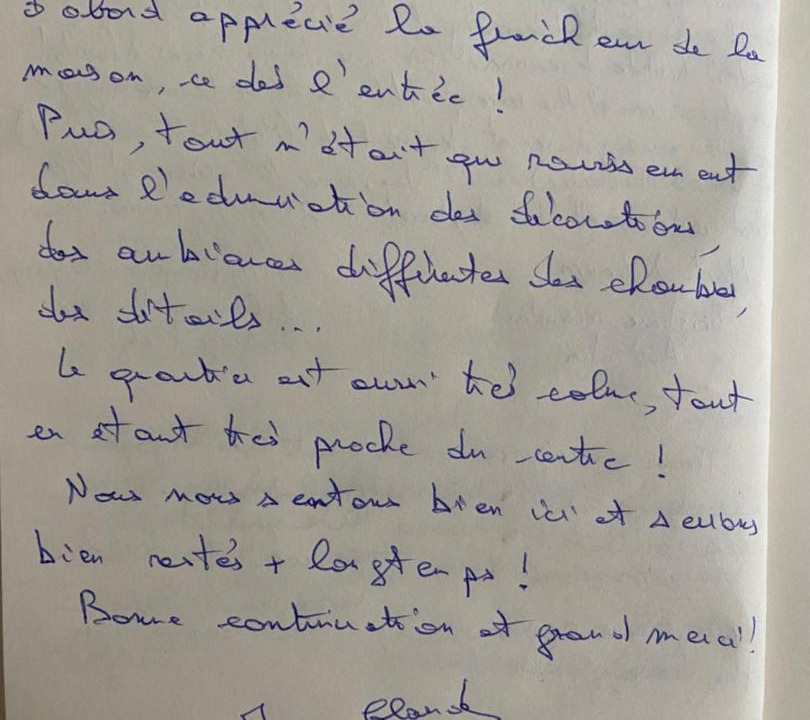 d'abord apprécié la fraîcheur de la
maison, ce dès l'entrée !
Puis, tout n'était que ravissement
dans l'admiration des décorations,
des ambiances différentes des chambres,
des détails...
Le quartier est aussi très calme, tout
en étant très proche du centre !
Nous nous sentons bien ici et serions
bien restés + longtemps !
Bonne continuation et grand merci !